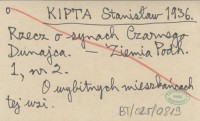 KIPTA Stanisław 1936.
Rzecz o synach Czarnego
Dunajca. — Ziemia Podh.
1, nr 2.
O wybitnych mieszkańcach
tej wsi.
BT/025/0819